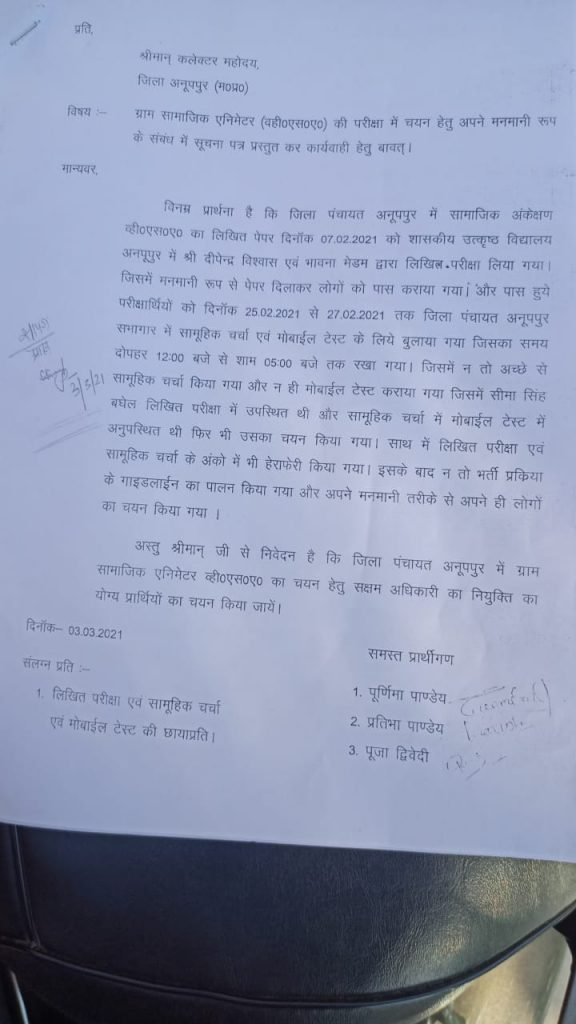 प्रति,
श्रीमान् कलेक्टर महोदय,
जिला अनूपपुर (म०प्र०)
विषय :– ग्राम सामाजिक एनिमेटर (वही०एस०ए०) की परीक्षा में चयन हेतु अपने मनमानी रूप
के संबंध में सूचना पत्र प्रस्तुत कर कार्यवाही हेतु बावत्।
मान्यवर,
विनम्र प्रार्थना है कि जिला पंचायत अनूपपुर में सामाजिक अंकेक्षण
व्ही०एस०ए० का लिखित पेपर दिनॉक 07.02.2021 को शासकीय उत्कृष्ठ विद्यालय
अनपूपुर में श्री दीपेन्द्र विश्वास एवं भावना मेडम द्वारा लिखित परीक्षा लिया गया।
जिसमें मनमानी रूप से पेपर दिलाकर लोगों को पास कराया गया। और पास हुये
परीक्षार्थियों को दिनॉक 25.02.2021 से 27.02.2021 तक जिला पंचायत अनूपपुर
सभागार में सामूहिक चर्चा एवं मोबाईल टेस्ट के लिये बुलाया गया जिसका समय
दोपहर 12:00 बजे से शाम 05:00 बजे तक रखा गया। जिसमें न तो अच्छे से
सामूहिक चर्चा किया गया और न ही मोबाईल टेस्ट कराया गया जिसमें सीमा सिंह
बघेल लिखित परीक्षा में उपस्थित थी और सामूहिक चर्चा में मोबाईल टेस्ट में
अनुपस्थित थी फिर भी उसका चयन किया गया। साथ में लिखित परीक्षा एवं
सामूहिक चर्चा के अंको में भी हेराफेरी किया गया। इसके बाद न तो भर्ती प्रकिया
के गाइडलाईन का पालन किया गया और अपने मनमानी तरीके से अपने ही लोगों
का चयन किया गया ।
अस्तु श्रीमान् जी से निवेदन है कि जिला पंचायत अनूपपुर में ग्राम
सामाजिक एनिमेटर व्ही०एस०ए० का चयन हेतु सक्षम अधिकारी का नियुक्ति का
योग्य प्रार्थियों का चयन किया जायें।
दिनॉक– 03.03.2021
संलग्न प्रति :–
1. लिखित परीक्षा एवं सामूहिक चर्चा
एवं मोबाईल टेस्ट की छायाप्रति।
समस्त प्रार्थीगण
1. पूर्णिमा पाण्डेय
2. प्रतिभा पाण्डेय
3. पूजा द्विवेदी
प्राप्त
3/3/21